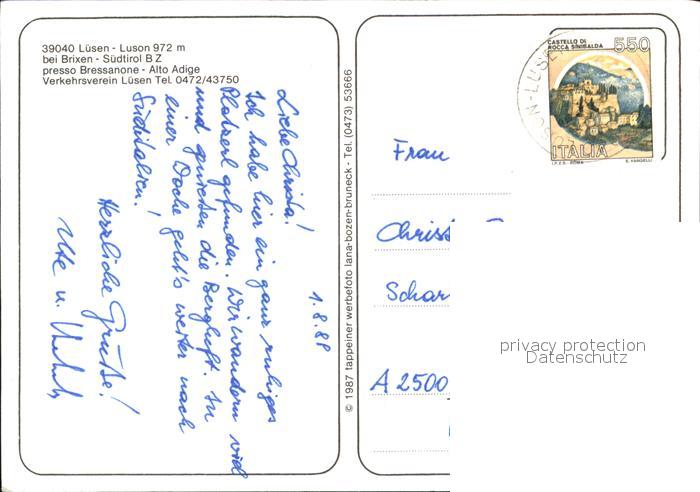 39040 Lüsen - Luson 972 m
bei Brixen - Südtirol B Z
presso Bressanone - Alto Adige
Verkehrsverein Lüsen Tel. 0472/43750
1.8.88
Liebe Christa!
Ich habe hier ein ganz ruhiges
Platzerl gefunden. Wir wandern viel
und genießen die Bergluft. In
einer Woche geht's weiter nach
Süditalien!
Herzliche Grüße!
Ute u.
© 1987 tappeiner werbefoto lana-bozen-bruneck - Tel. (0473) 53666
CASTELLO DI
ROCCA SINIBALDA
550
ITALIA
I.P.Z.S. - ROMA
E. VANGELLI
LUSON-LÜSEN
Frau
Christ
Schar
A 2500
privacy protection
Datenschutz